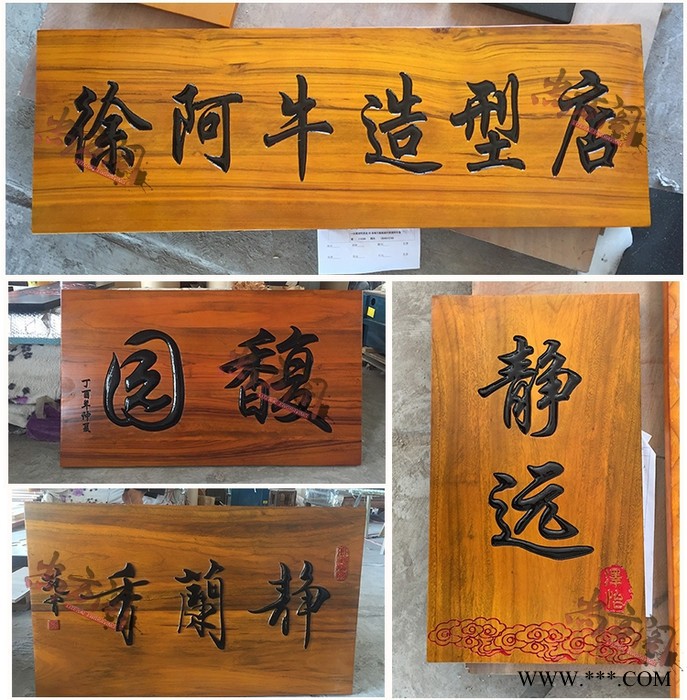 徐阿牛造型店
馥园
丁酉年
静蘭香
静
远
澤怡
WWW.***.COM